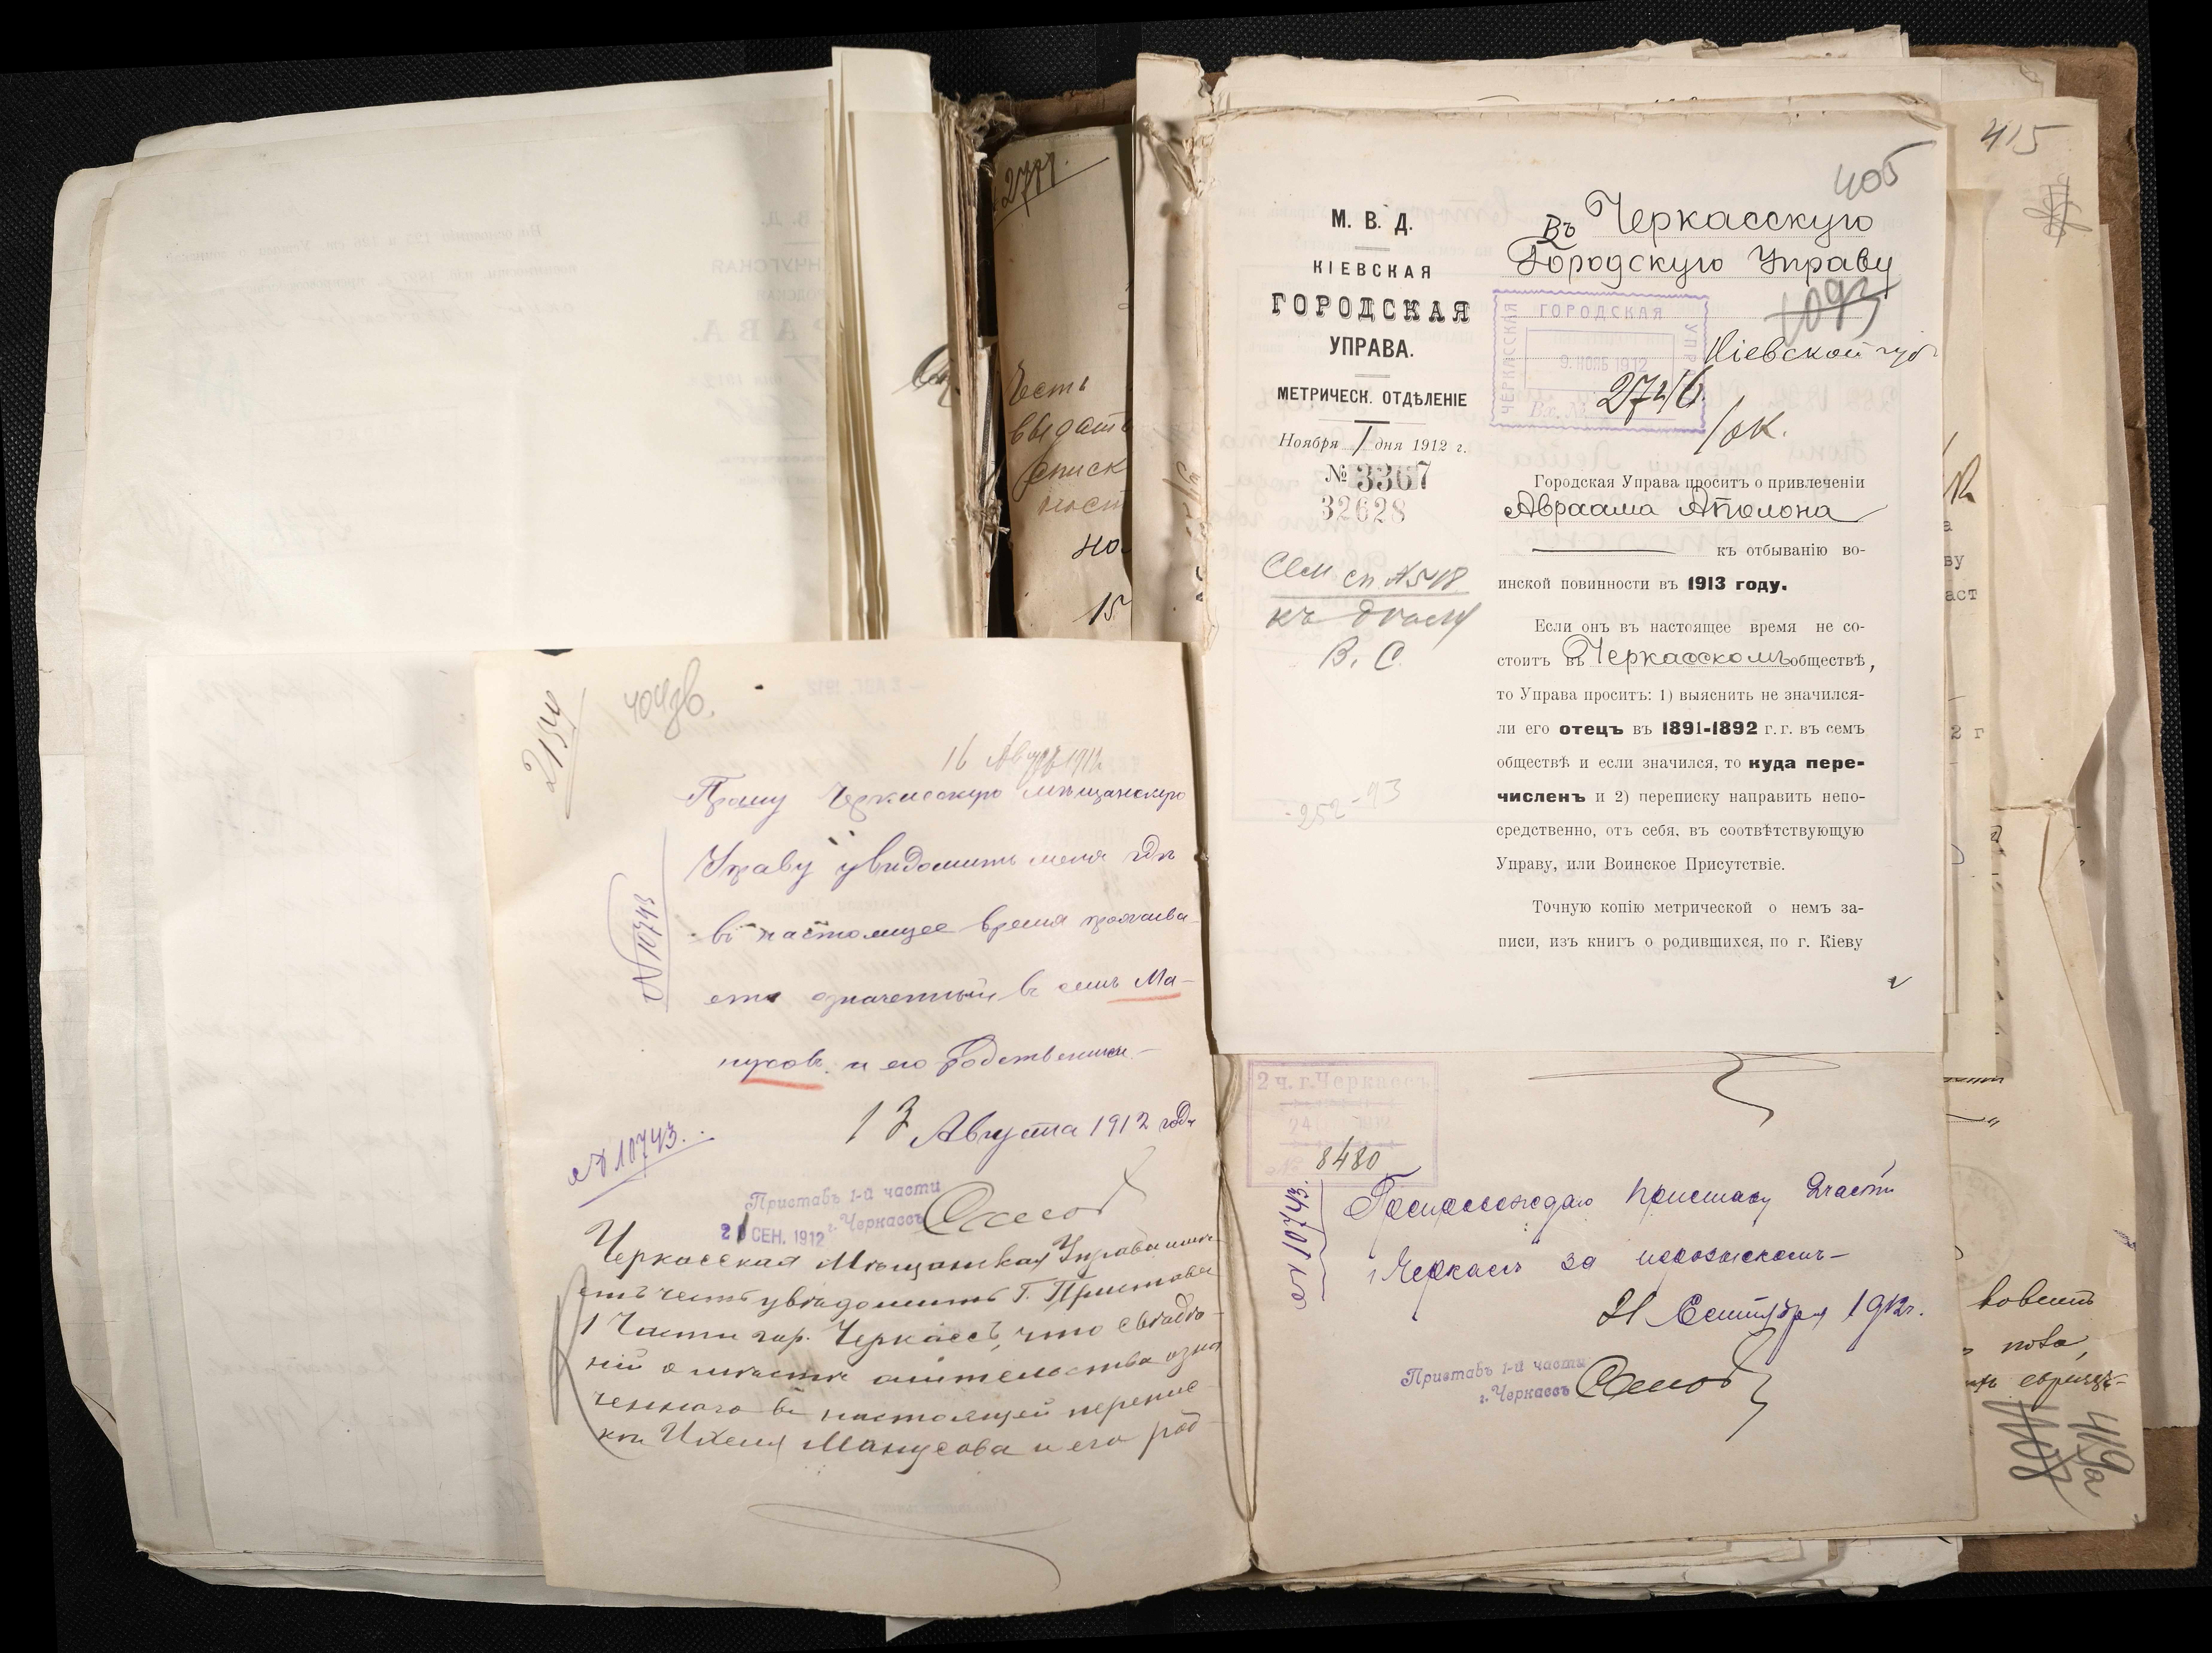 415
405
М. В. Д.
КІЕВСКАЯ
ГОРОДСКАЯ
УПРАВА.
МЕТРИЧЕСК. ОТДѢЛЕНІЕ
Ноября 1 дня 1912 г.
№ 3367
32628
Сем сп №548
къ дѣлу
В. С.
252-93
Въ Черкасскую
Городскую Управу
1093
Кіевской губ
ЧЕРКАССКАЯ ГОРОДСКАЯ УПР
9. НОЯБ 1912
Вх. №
Городская Управа проситъ о привлеченіи
Авраама Аполона
къ отбыванію во-
инской повинности въ 1913 году.
Если онъ въ настоящее время не со-
стоитъ въ Черкасскомъ обществѣ,
то Управа проситъ: 1) выяснить не значился-
ли его отецъ въ 1891-1892 г.г. въ семъ
обществѣ и если значился, то куда пере-
численъ и 2) переписку направить непо-
средственно, отъ себя, въ соотвѣтствующую
Управу, или Воинское Присутствіе.
Точную копію метрической о немъ за-
писи, изъ книгъ о родившихся, по г. Кіеву
Честь
выдать
списк
ност
на
15
404об.
16 Авг 1912
Прошу Черкасскую мѣщанскую
Управу увѣдомить меня гдѣ
въ настоящее время прожива-
етъ означенный въ семъ Ма-
нусовъ и его родственники
13 Августа 1912 года
№ 10743
№ 10743.
Приставъ 1-й части
г. Черкассъ
21 СЕН. 1912
Черкасская Мѣщанская Управа имѣ-
етъ честь увѣдомить Г. Пристава
1 Части гор. Черкассъ, что свѣдѣ-
ній о мѣстѣ жительства озна
ченнаго въ настоящей перепис
ки Ихеля Манусова и его род
2 ч. г. Черкассъ
24 1912
№ 8480
№ 10743.
Препровождаю Приставу 2 части
г. Черкассъ за розыскомъ
21 Сентября 1912 г.
Приставъ 1-й части
г. Черкассъ
419а